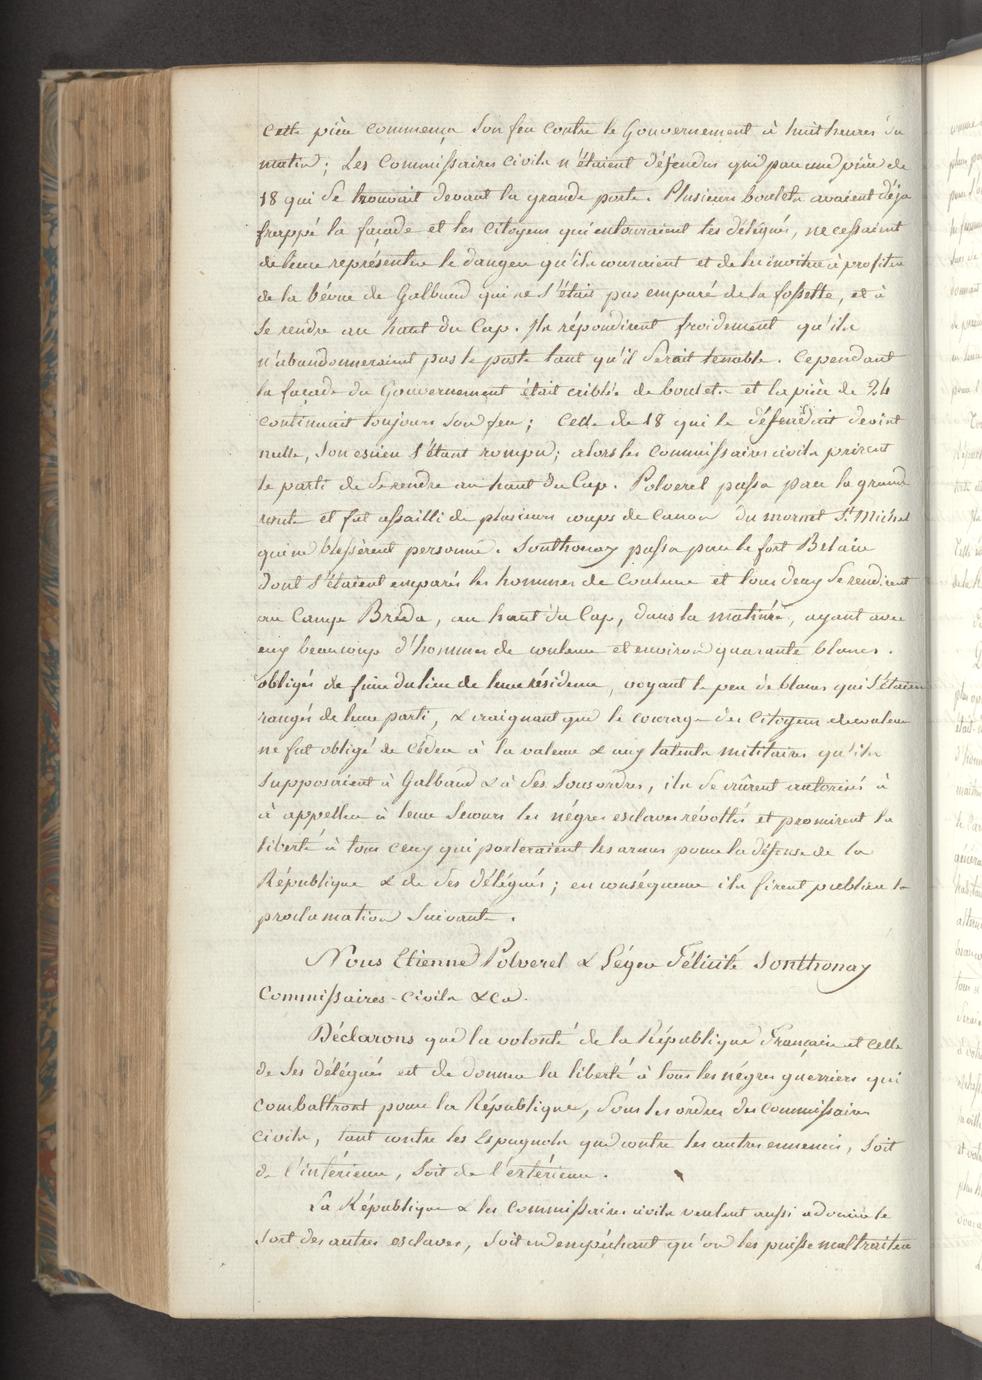 cette pièce commença son feu contre le Gouvernement à huit heures du
matin ; Les Commissaires civils n'étaient défendus que par une pièce de
18 qui se trouvait devant la grande porte. Plusieurs boulets avaient déja
frappé la façade et les Citoyens qui entouraient les délégués, ne cessaient
de leur représenter le danger qu'ils couraient et de les inviter à profiter
de la bévue de Galbaud qui ne s'était pas emparé de la fossette, et à
se rendre au haut du Cap. Ils répondirent froidement qu'ils
n'abandonneraient pas le poste tant qu'il serait tenable. Cependant
la façade du Gouvernement était criblée de boulets et la pièce de 24
continuait toujours son feu ; Celle de 18 qui le défendait devint
nulle, son essieu s'étant rompu ; alors les Commissaires civils prirent
le parti de se rendre au haut du Cap. Polverel passa par la grande
route et fut assailli de plusieurs coups de Canon du mornet St. Michel
qui ne blessèrent personne. Sonthonax passa par le fort Belair
dont s'étaient emparés les hommes de Couleur et tous deux se rendirent
au Camp Bréda, au haut du Cap, dans la matinée, ayant avec
eux beaucoup d'hommes de couleur et environ quarante blancs.
obligés de fuir du lieu de leur résidence, voyant le peu de blancs qui s'étaient
rangés de leur parti, & craignant que le courage des Citoyens de couleur
ne fut obligé de céder à la valeur & aux talents militaires qu'ils
supposaient à Galbaud & à ses sous ordres, ils se crûrent autorisés à
à appeller à leur secours les négres esclaves révoltés et promirent la
liberté à tous ceux qui porteraient les armes pour la défense de la
République & de ses délégués ; en conséquence ils firent publier la
proclamation suivante.
Nous Etienne Polverel & Léger Félicité Sonthonax
Commissaires-Civils &ca.
Déclarons que la volonté de la République Française et celle
de ses délégués est de donner la liberté à tous les négres guerriers qui
combattront pour la République, sous les ordres des Commissaires
civils, tant contre les Espagnols que contre les autres ennemis, soit
de l'intérieur, soit de l'extérieur.
La République & les Commissaires civils veulent aussi adoucir le
sort des autres esclaves, soit en empêchant qu'on les puisse maltraiter